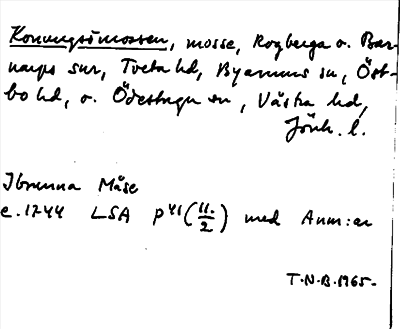 Konungsmossen, mosse, Rogberga o. Bar-
narps snr, Tveta hd, Byarums sn, Öst-
bo hd, o. Ödestugu sn, Västra hd,
Jönk. l.
Ibrunna Måse
c. 1744 LSA P 41 (11./2) med Anm:ar
T.N.B. 1965.